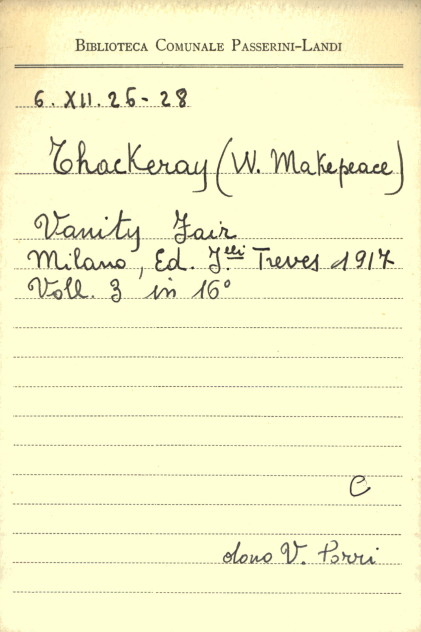 BIBLIOTECA COMUNALE PASSERINI-LANDI
6. XII. 26-28
Thackeray (W. Makepeace)
Vanity Fair
Milano, Ed. F.lli Treves 1917
Voll. 3 in 16°
C
dono V. Porri